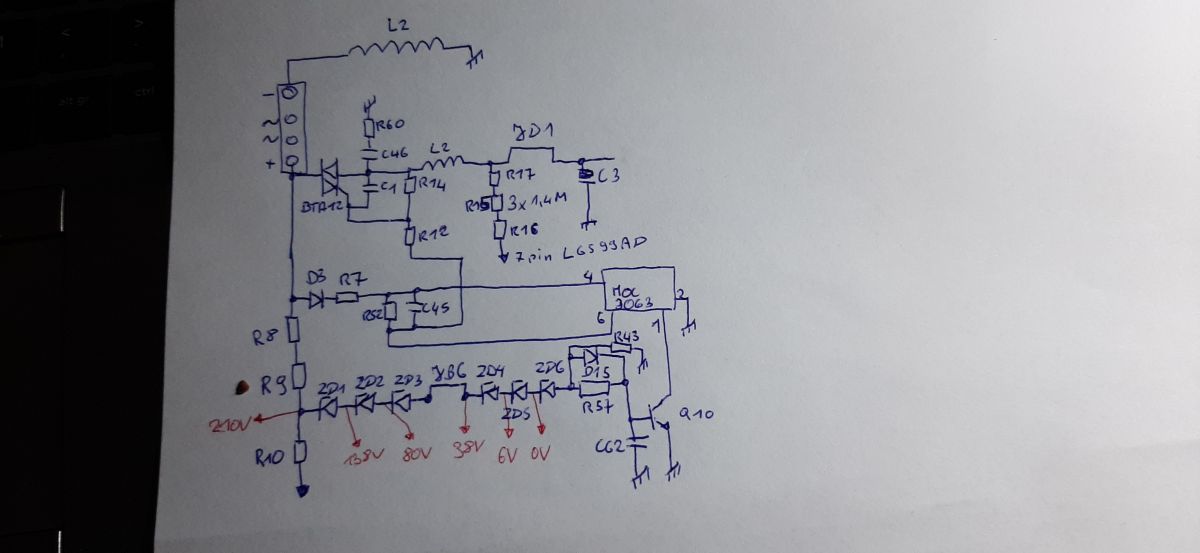 L2
-
~
~
+
R60
C46
L2
JD1
R17
C3
C1
R14
BTA12
R15 3x1,4M
R12
R16
7pin L6599AD
D3
R7
4
MOC
3063
2
R52
C45
6
1
R8
R43
R9
ZD1
ZD2
ZD3
JB6
ZD4
ZD6
D15
ZD5
R57
Q10
210V
138V
80V
38V
6V
0V
C62
R10
alt gr
ctrl